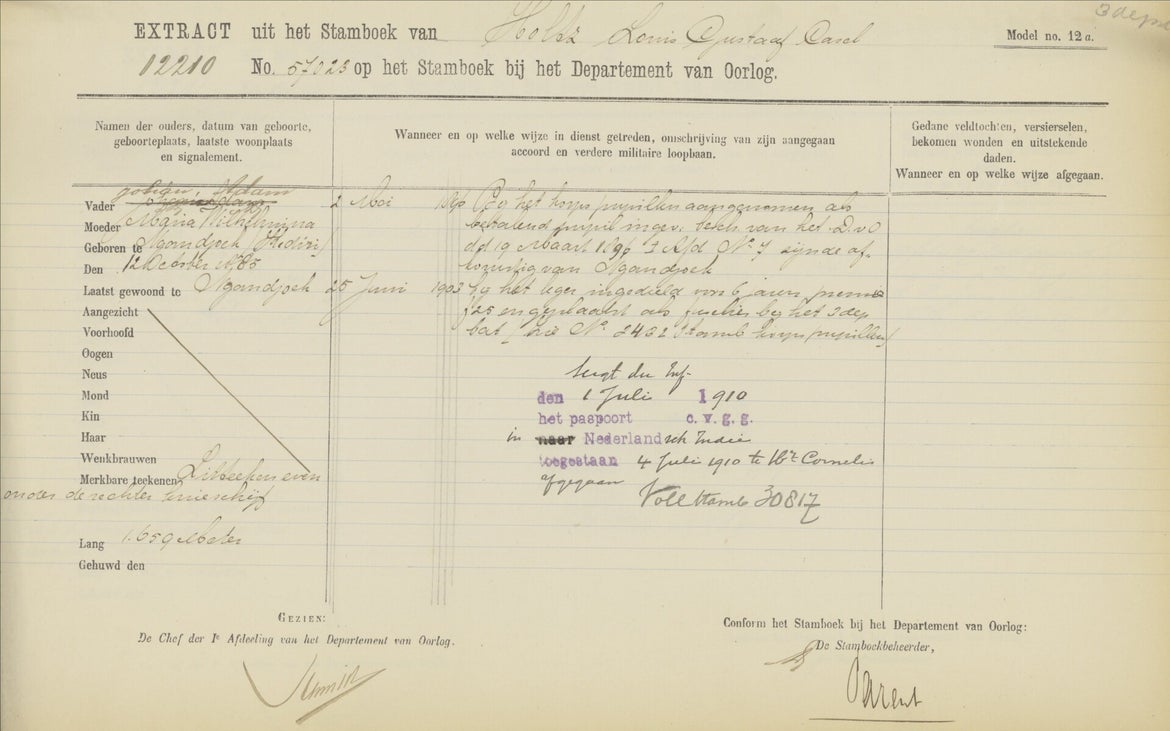 3 dep
EXTRACT uit het Stamboek van Holtz Louis Gustaaf Carel
Model no. 12a.
12210 No. 57023 op het Stamboek bij het Departement van Oorlog.
Namen der ouders, datum van geboorte,
geboorteplaats, laatste woonplaats
en signalement.
Wanneer en op welke wijze in dienst getreden, omschrijving van zijn aangegaan
accoord en verdere militaire loopbaan.
Gedane veldtochten, versierselen,
bekomen wonden en uitstekende
daden.
Wanneer en op welke wijze afgegaan.
Adam
Vader
Moeder Maria Wilhelmina
Geboren te Ngandjoek (Kediri)
Den 12 October 1885
Laatst gewoond te Ngandjoek
Aangezicht
Voorhoofd
Oogen
Neus
Mond
Kin
Haar
Wenkbrauwen
Merkbare teekenen Litteeken even
onder de rechter knieschijf
Lang 1.659 Meter
Gehuwd den
2 Mei 1896 By het korps pupillen aangenomen als
betalend pupil ingev. besch. van het D.v.O
dd 19 Maart 1896 I Afd No. 7 zijnde af-
komstig van Ngandjoek
25 Juni 1903 By het leger ingedeeld voor 6 jaren premie
ƒ25 en geplaatst als fuselier bij het 3 dep
bat (zie No. 2482 Stamb korps pupillen)
Sergt der Inf.
den 1 Juli 1910
het paspoort c. v. g. g.
in naar Nederlandsch Indie
toegestaan 4 Juli 1910 te Mr Cornelis
afgegaan
Voll Stamb 30817
GEZIEN:
De Chef der 1e Afdeeling van het Departement van Oorlog.
Conform het Stamboek bij het Departement van Oorlog:
De Stamboekbeheerder,
Parent